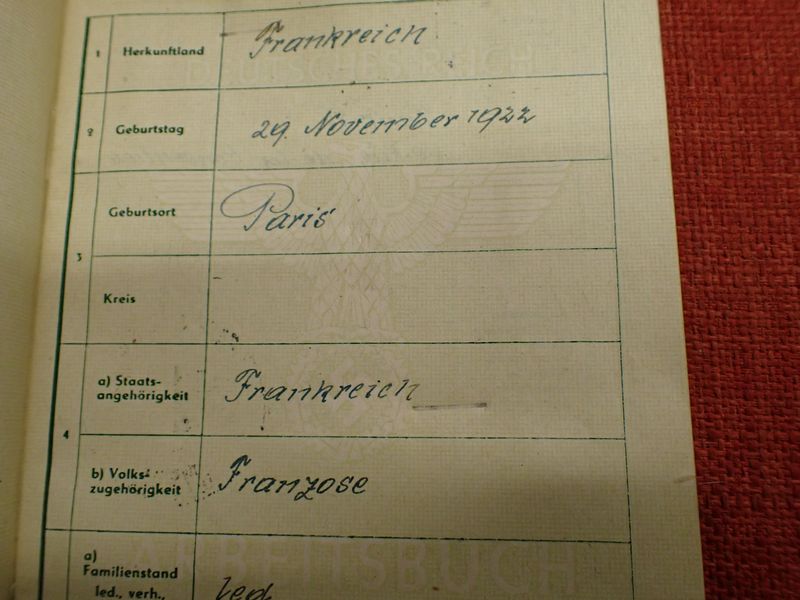 1 Herkunftland Frankreich
DEUTSCHES REICH
2 Geburtstag 29. November 1922
3
Geburtsort Paris
Kreis
4
a) Staats-
angehörigkeit Frankreich
b) Volks-
zugehörigkeit Franzose
ARBEITSBUCH
a)
Familienstand
led., verh., led.